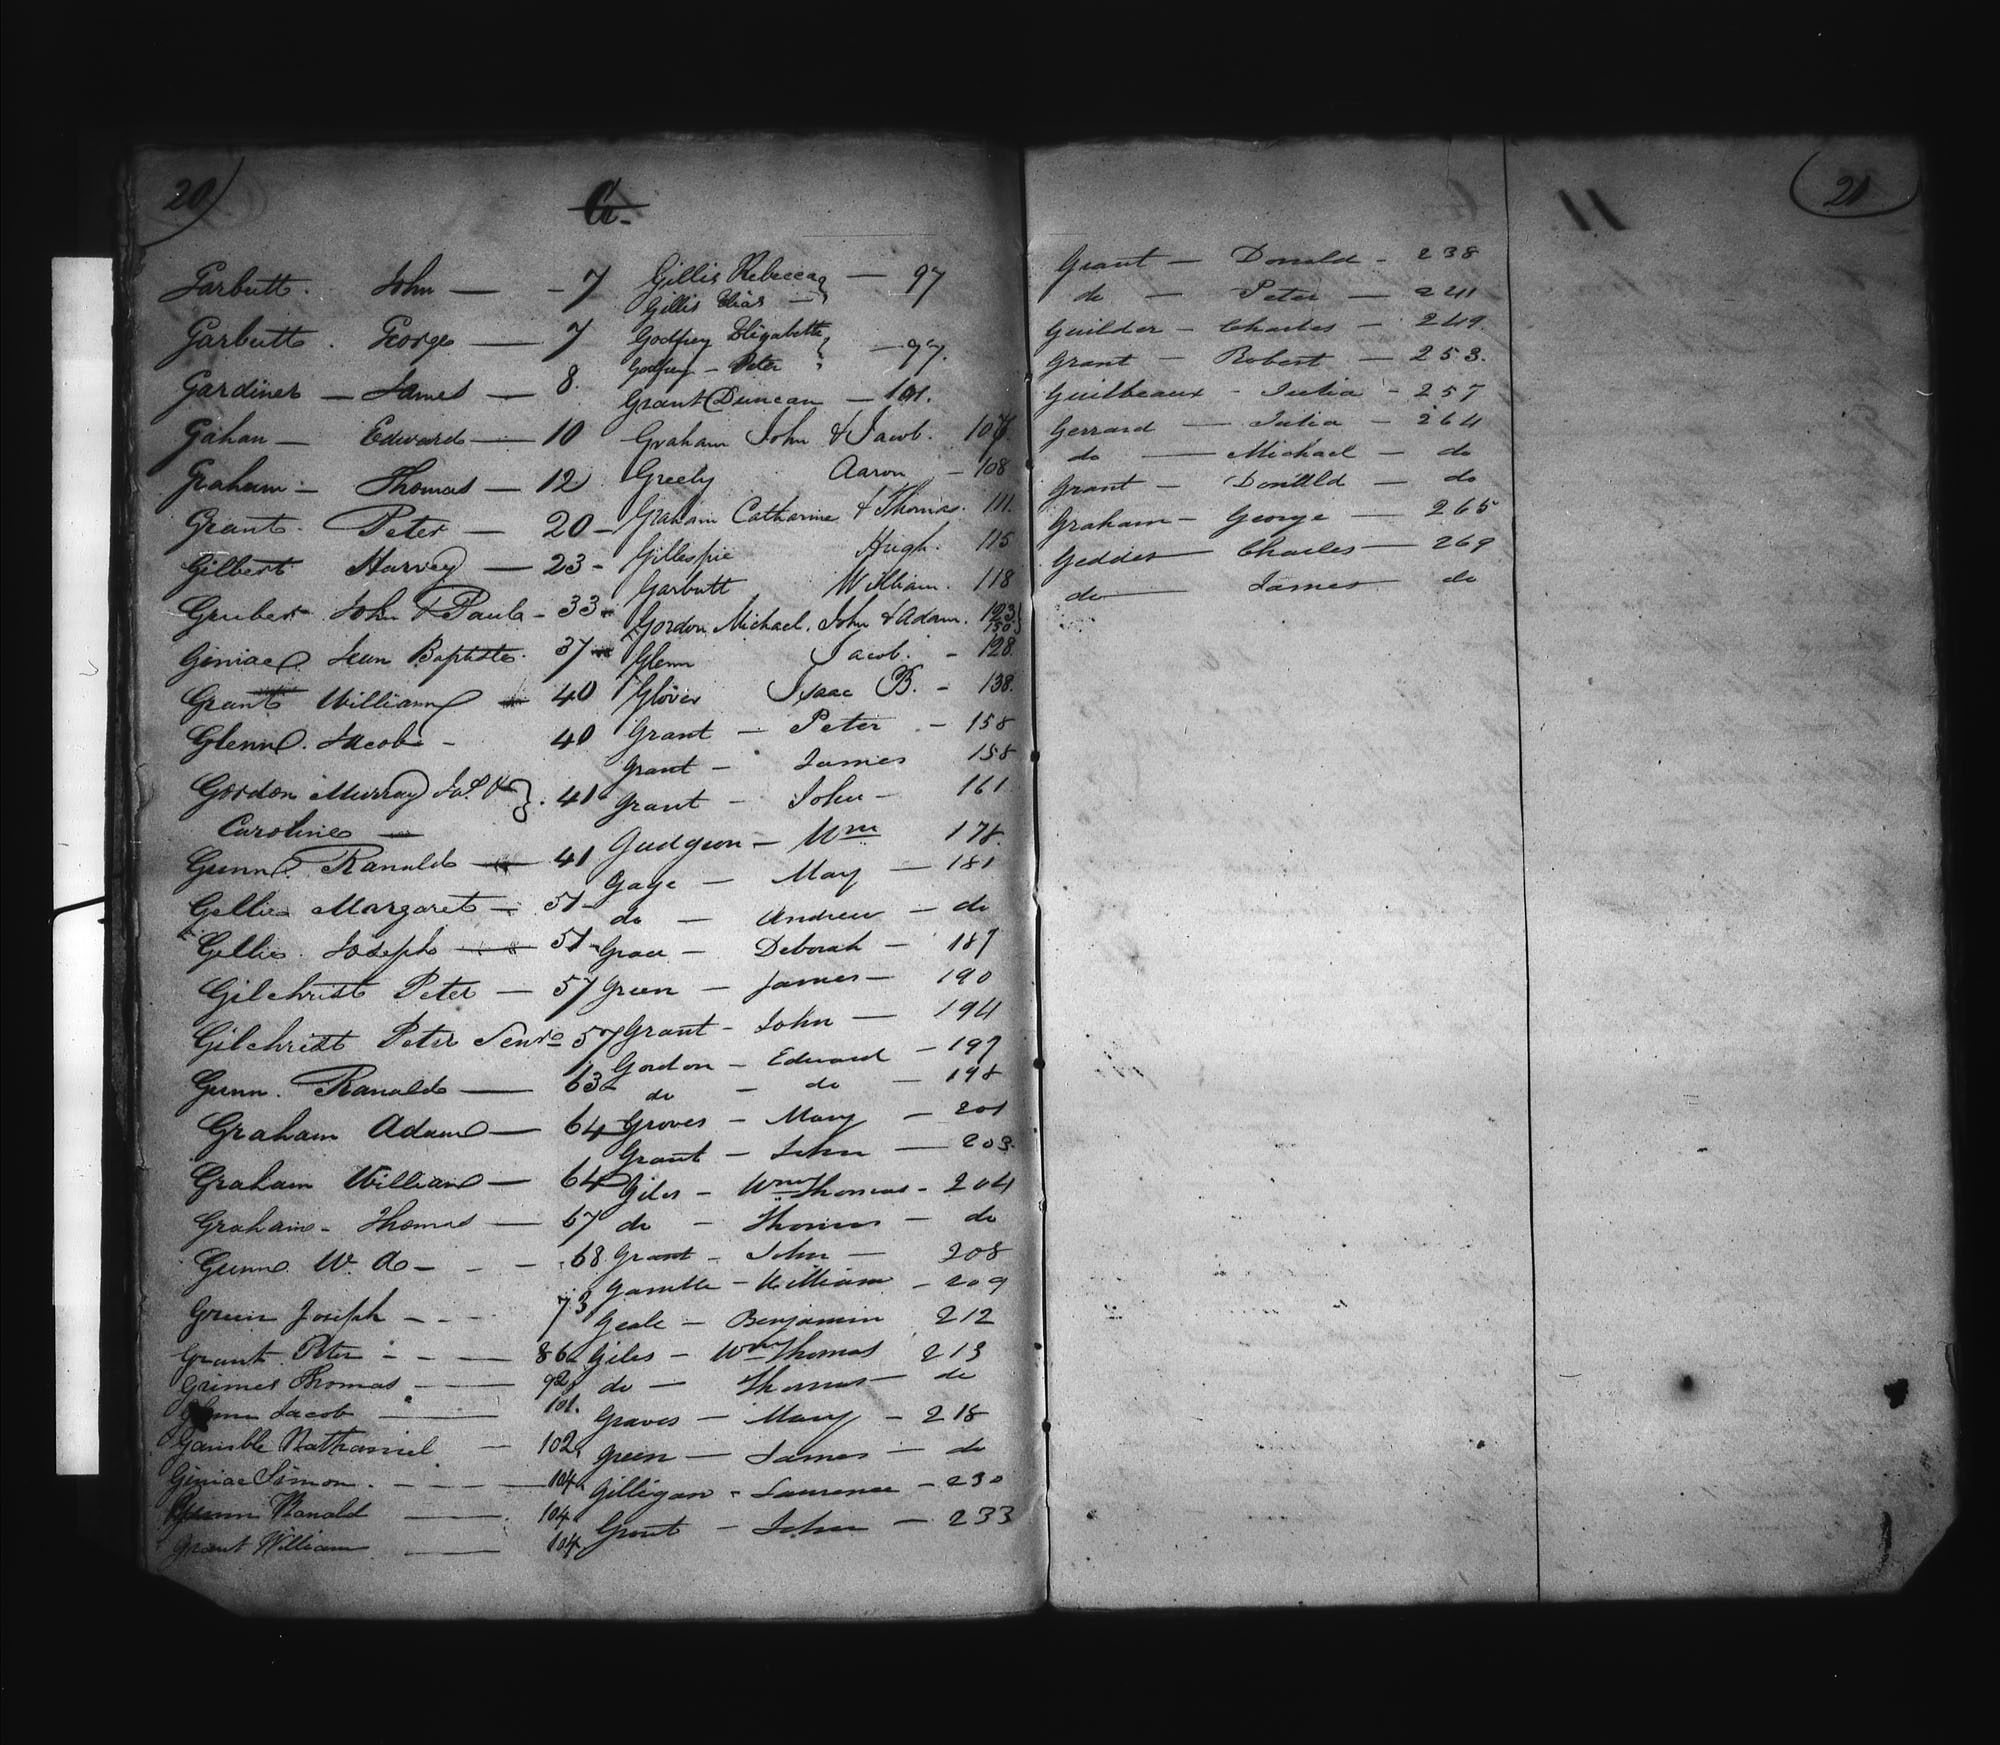 20
G.
Garbutt. John — - 7
Garbutt. George — 7
Gardiner — James — 8.
Gahan — Edward — 10
Graham - Thomas — 12
Grant. Peter — 20 -
Gilbert Harvey — 23 -
Gruber John & Paul - 33
Giniac Jean Baptiste. 37
Grant William 40
Glenn. Jacob - 40
Gordon Murray Jas. & }. 41
Caroline —
Gunn. Ranald — 41
Gellie Margaret - 51 -
Gellie. Joseph — 51 -
Gilchrist Peter — 57
Gilchrist Peter Senr 57
Gunn. Ranald — 63
Graham Adam — 64
Graham William — 64
Graham - Thomas — 67
Gunn. W. A - - - 68.
Green Joseph - - - 73
Grant. Peter - - - — 86
Grimes Thomas - — 92
Glenn Jacob — 101.
Gamble Nathaniel — 102
Giniac Simon. - - - — 104
Gunn Ranald — 104
Grant William — 104
Gillis Rebecca } — 97
Gillis Elias —
Godfrey Elizabeth } — 97.
Godfrey - Peter
Grant Duncan — 101.
Graham John & Jacob. 107.
Greely Aaron — 108
Graham Catharine & Thomas. 111.
Gillespie Hugh. 115
Garbutt William. 118
Gordon Michael, John & Adam. 123 }
130
Glenn Jacob. - 128.
Glover Isaac B. - 138.
Grant — Peter - 158
Grant — James 158
Grant — John - 161
Gudgeon — Wm 178.
Gage — Mary — 181
do — Andrew — do
Grace — Deborah — 187
Green — James — 190
Grant - John — 194
Gordon — Edward — 197
do - do — 198
Groves — Mary — 201
Grant — John — 203.
Giles — Wm Thomas - 204
do — Thomas — do
Grant — John — 208
Gamble — William — 209
Geale — Benjamin 212
Giles — Wm Thomas 213
do — Thomas — do
Graves — Mary — 218
Green — James — do
Gilligan - Laurence — 230
Grant — John — 233
21
Grant — Donald - 238
do — Peter — 241
Guilder — Charles — 249.
Grant — Robert — 253.
Guilbeaux - Julia - 257
Gerrard — Julia - 264
do — Michael — do
Grant — Donald — do
Graham — George — 265
Geddes — Charles — 269
do — James — do